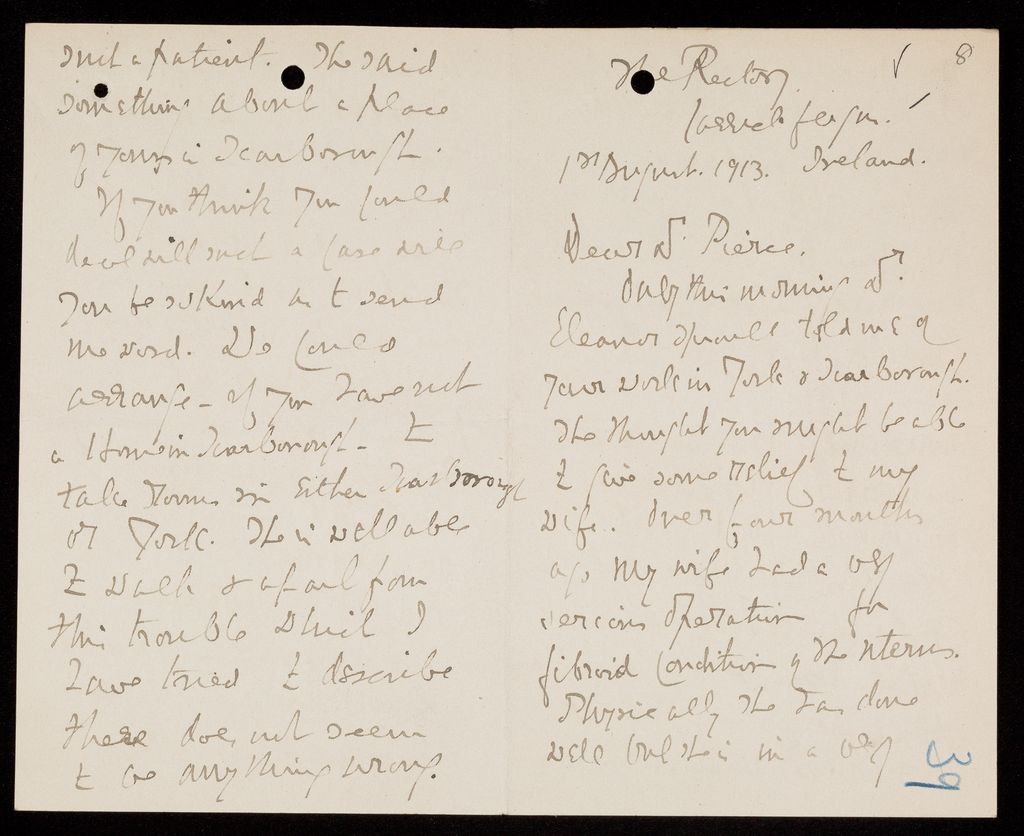 such a patient. She said
something about a place
of yours in Scarborough.
If you think you could
deal with such a case will
you be so kind as to send
me word. We could
arrange - if you have not
a Home in Scarborough - to
take rooms in either Scarborough
or York. She is well able
to walk & apart from
this trouble which I
have tried to describe
there does not seem
to be anything wrong.
8
The Rectory
Carrickfergus.
1st August. 1913. Ireland.
Dear Dr Pierce.
Only this morning Dr.
Eleanor Sproull told me of
your work in York & Scarborough.
She thought you might be able
to give some relief to my
wife. Over four months
ago my wife had a very
serious operation for
fibroid condition of the uterus.
Physically she has done
well but she is in a very
39